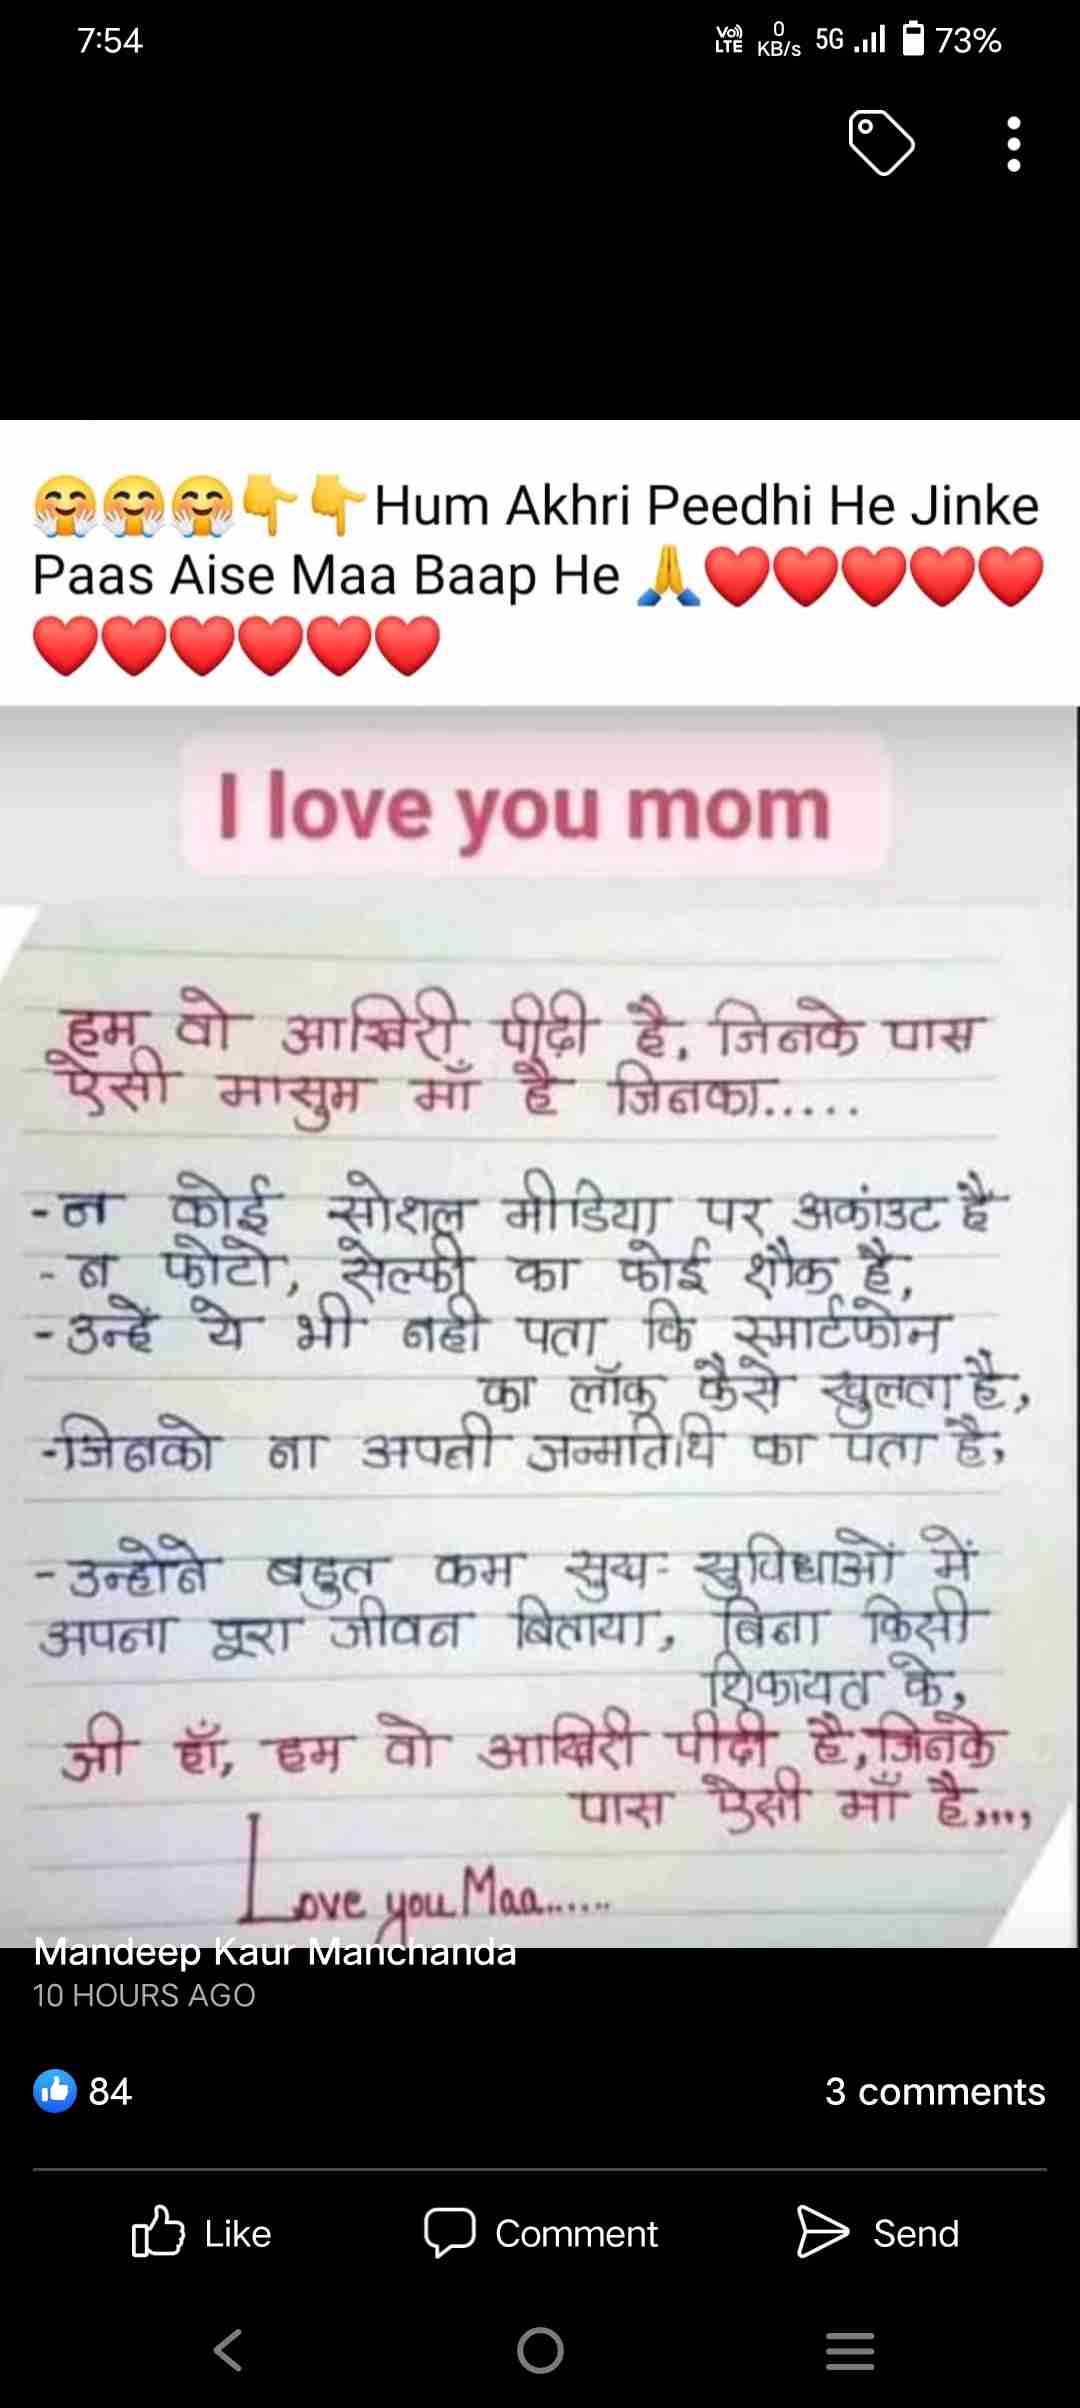 7:54
Vo)) LTE 0 KB/s 5G 73%
🤗🤗🤗👇👇Hum Akhri Peedhi He Jinke
Paas Aise Maa Baap He 🙏❤️❤️❤️❤️❤️
❤️❤️❤️❤️❤️❤️
I love you mom
हम वो आखिरी पीढ़ी है, जिनके पास
ऐसी मासुम माँ है जिनका.....
-न कोई सोशल मीडिया पर अकांउट है
- न फोटो, सेल्फी का कोई शौक है,
-उन्हें ये भी नही पता कि स्मार्टफोन
का लॉक कैसे खुलता है,
-जिनको ना अपनी जन्मतिथि का पता है,
-उन्होने बहुत कम सुख-सुविधाओं में
अपना पूरा जीवन बिताया, बिना किसी
शिकायत के,
जी हाँ, हम वो आखिरी पीढी है,जिनके
पास ऐसी माँ है,,,,
Love you Maa......
Mandeep Kaur Manchanda
10 HOURS AGO
84
3 comments
Like Comment Send